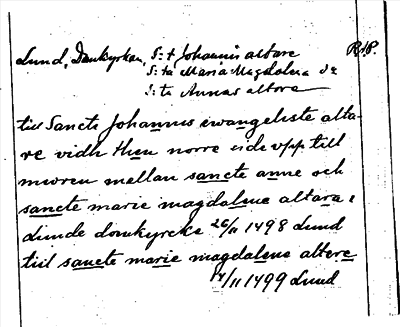 Lund, Domkyrkan, S:t Johannis altare R18.
S:ta Maria Magdalena o
S:ta Annas altare
till Sancti Johannis ewangeliste alta-
re vidh then norre side vpp till
mwren mellan sancte anne och
sancte marie magdalene altara i
Lunde domkyrcke 26/11 1498 Lund
till sancte marie magdalene altere
14/11 1499 Lund